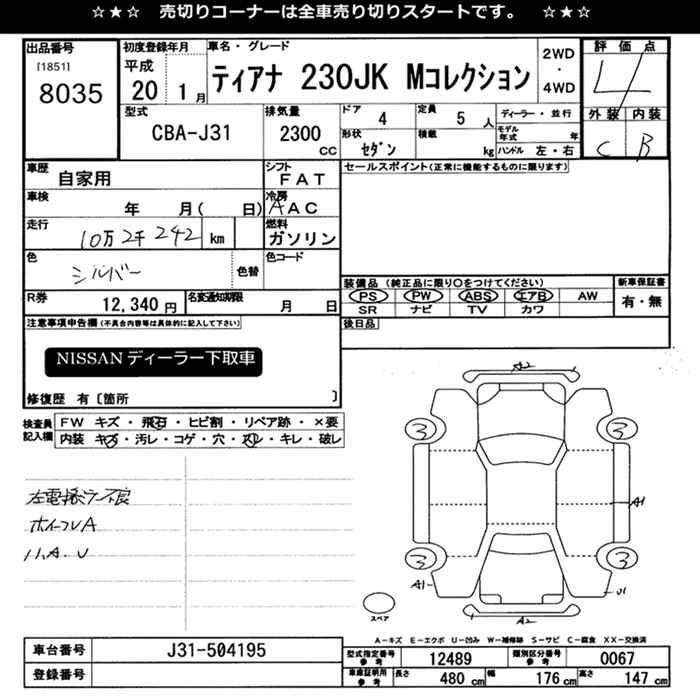 ☆★☆ 売切りコーナーは全車売り切りスタートです。 ☆★☆
出品番号
[1851]
8035
初度登録年月
平成
20 1月
車名・グレード
ティアナ 230JK Mコレクション
2WD
・
4WD
評価点
4
外装 内装
C B
型式
CBA-J31
排気量
2300
cc
ドア
4
定員
5人
形状
セダン
積載
kg
ディーラー・並行
モデル年式 年
ハンドル 左・右
車歴
自家用
シフト
FAT
車検
年 月( 日)
冷房
AAC
走行
10万2千242km
燃料
ガソリン
色
シルバー
色替
色コード
R券
12,340円
名変通知期限
月 日
セールスポイント(正常に機能するものに限ります)
装備品(純正品に限り○をつけてください)
PS PW ABS エアB AW
SR ナビ TV カワ
新車保証書
有・無
後日品
注意事項申告欄(不具合内容等は具体的に記入して下さい)
NISSANディーラー下取車
修復歴 有〔箇所 〕
検査員記入欄
FW キズ・飛石・ヒビ割・リペア跡・×要
内装 キズ・汚レ・コゲ・穴・スレ・キレ・破レ
ホイールA
ハA.U
A2
3 3
A1
3 3
A1 U1
A2
スペア
A-キズ E-エクボ U-凹み W-補修跡 S-サビ C-腐食 XX-交換済
車台番号
J31-504195
登録番号
型式指定番号
参考
12489
類別区分番号
参考
0067
車庫証明用
参考
長さ
480cm
幅
176cm
高さ
147cm